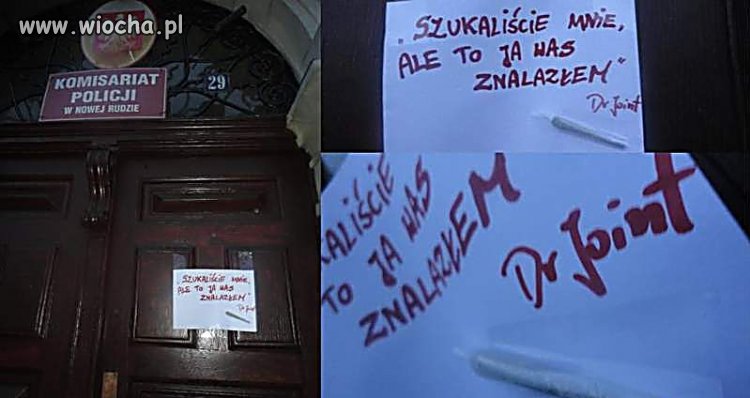 www.wiocha.pl
KOMISARIAT
POLICJI
W NOWEJ RUDZIE
29
„SZUKALIŚCIE MNIE,
ALE TO JA WAS
ZNALAZŁEM”
Dr Joint
„SZUKALIŚCIE MNIE,
ALE TO JA WAS
ZNALAZŁEM”
Dr Joint
KALIŚCIE
TO JA WAS
ZNALAZŁEM
Dr Joint